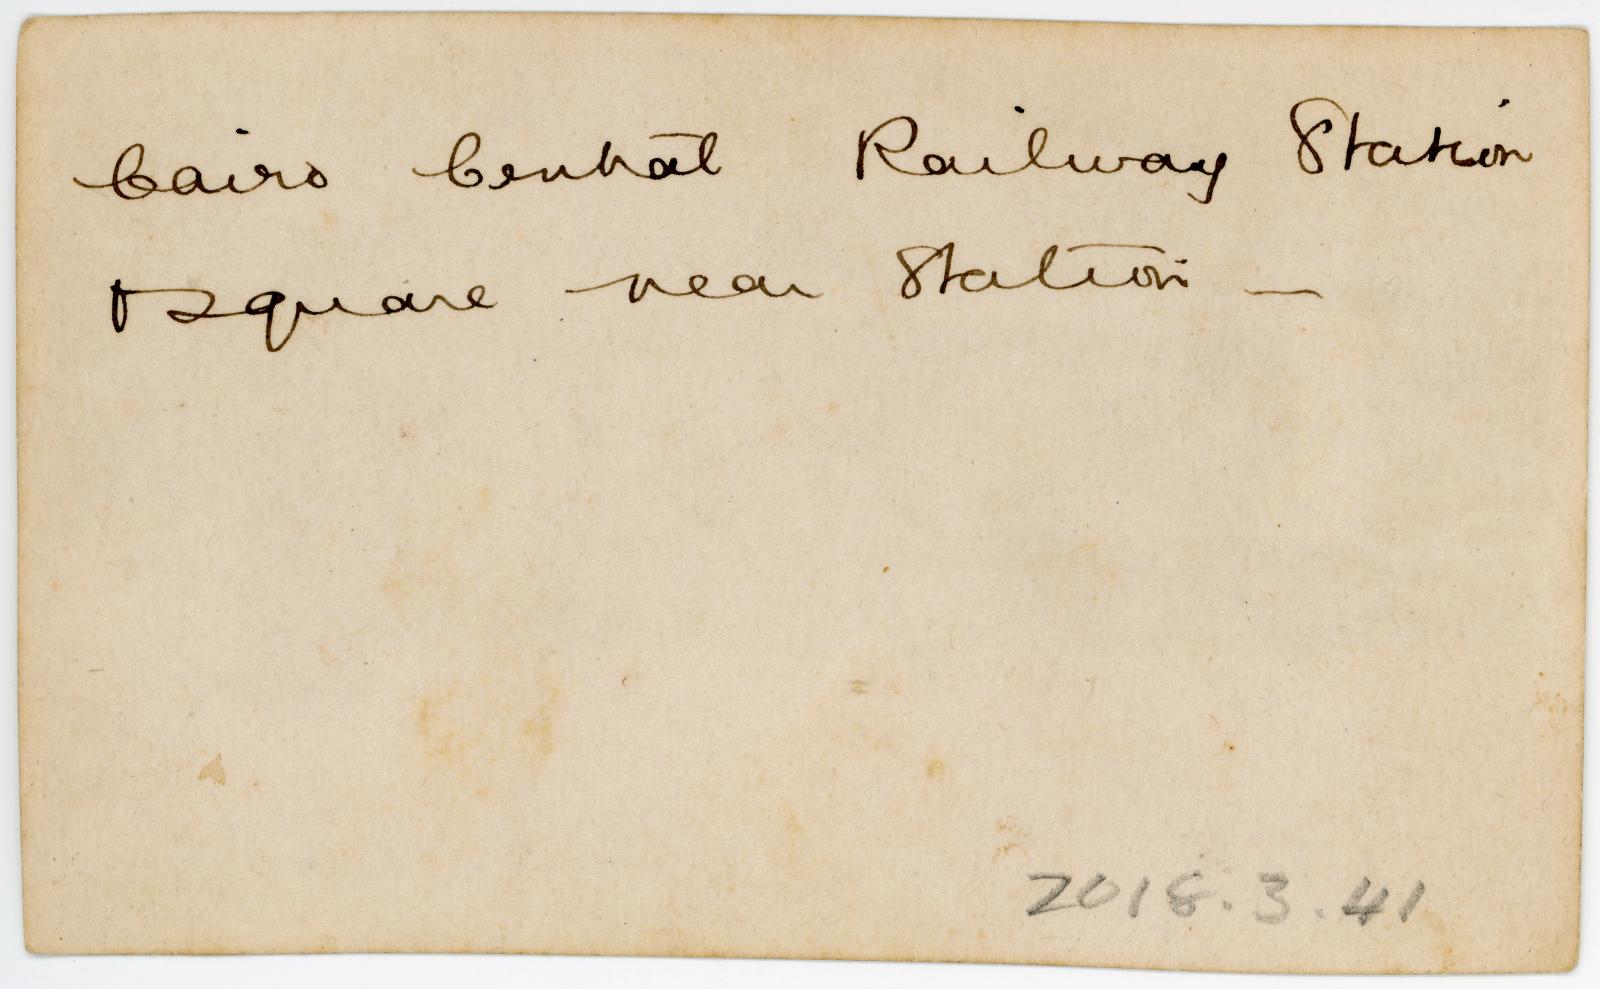 Cairo Central Railway Station
& square near Station —
2018.3.41